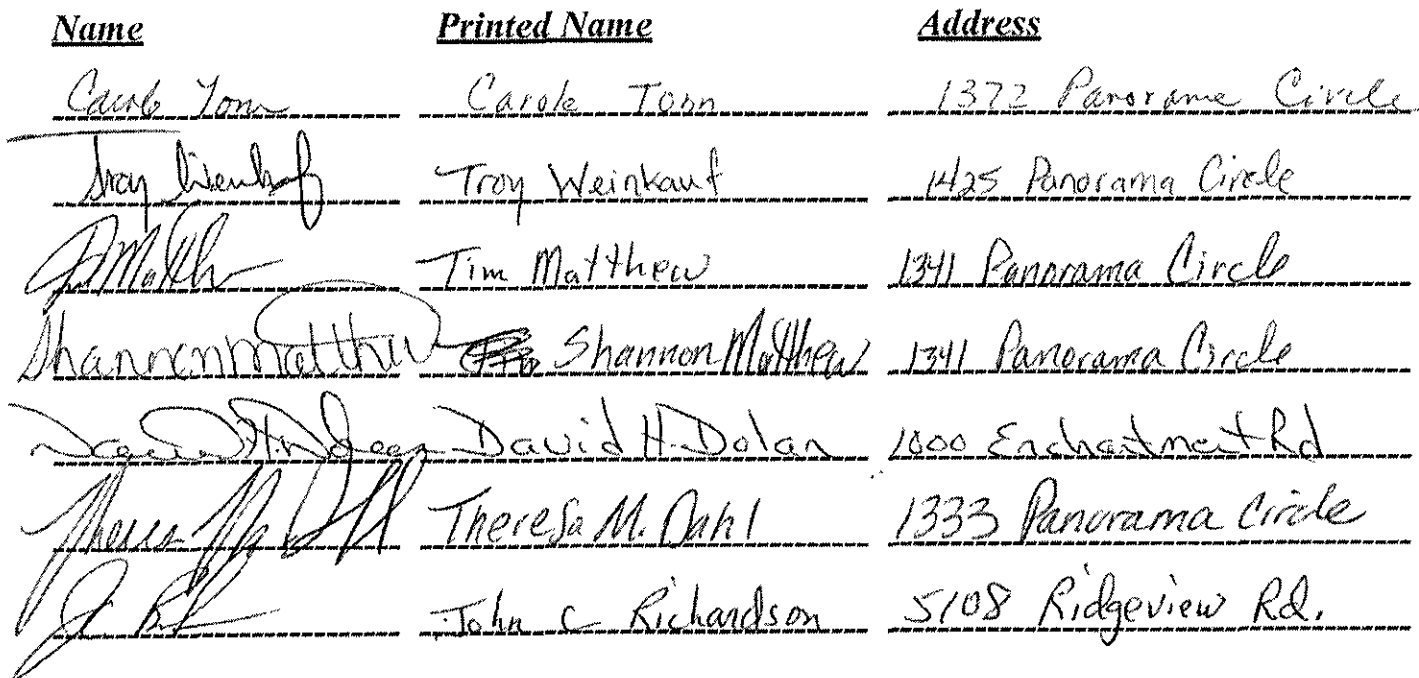 Name Printed Name Address
Carole Tonn Carole Tonn 1372 Panorama Circle
Troy Weinkauf Troy Weinkauf 1425 Panorama Circle
Matthew Tim Matthew 1341 Panorama Circle
Shannon Matthew Shannon Matthew 1341 Panorama Circle
David H. Dolan David H. Dolan 1000 Enchantment Rd
Theresa M Dahl Theresa M. Dahl 1333 Panorama Circle
John C Richardson 5108 Ridgeview Rd.